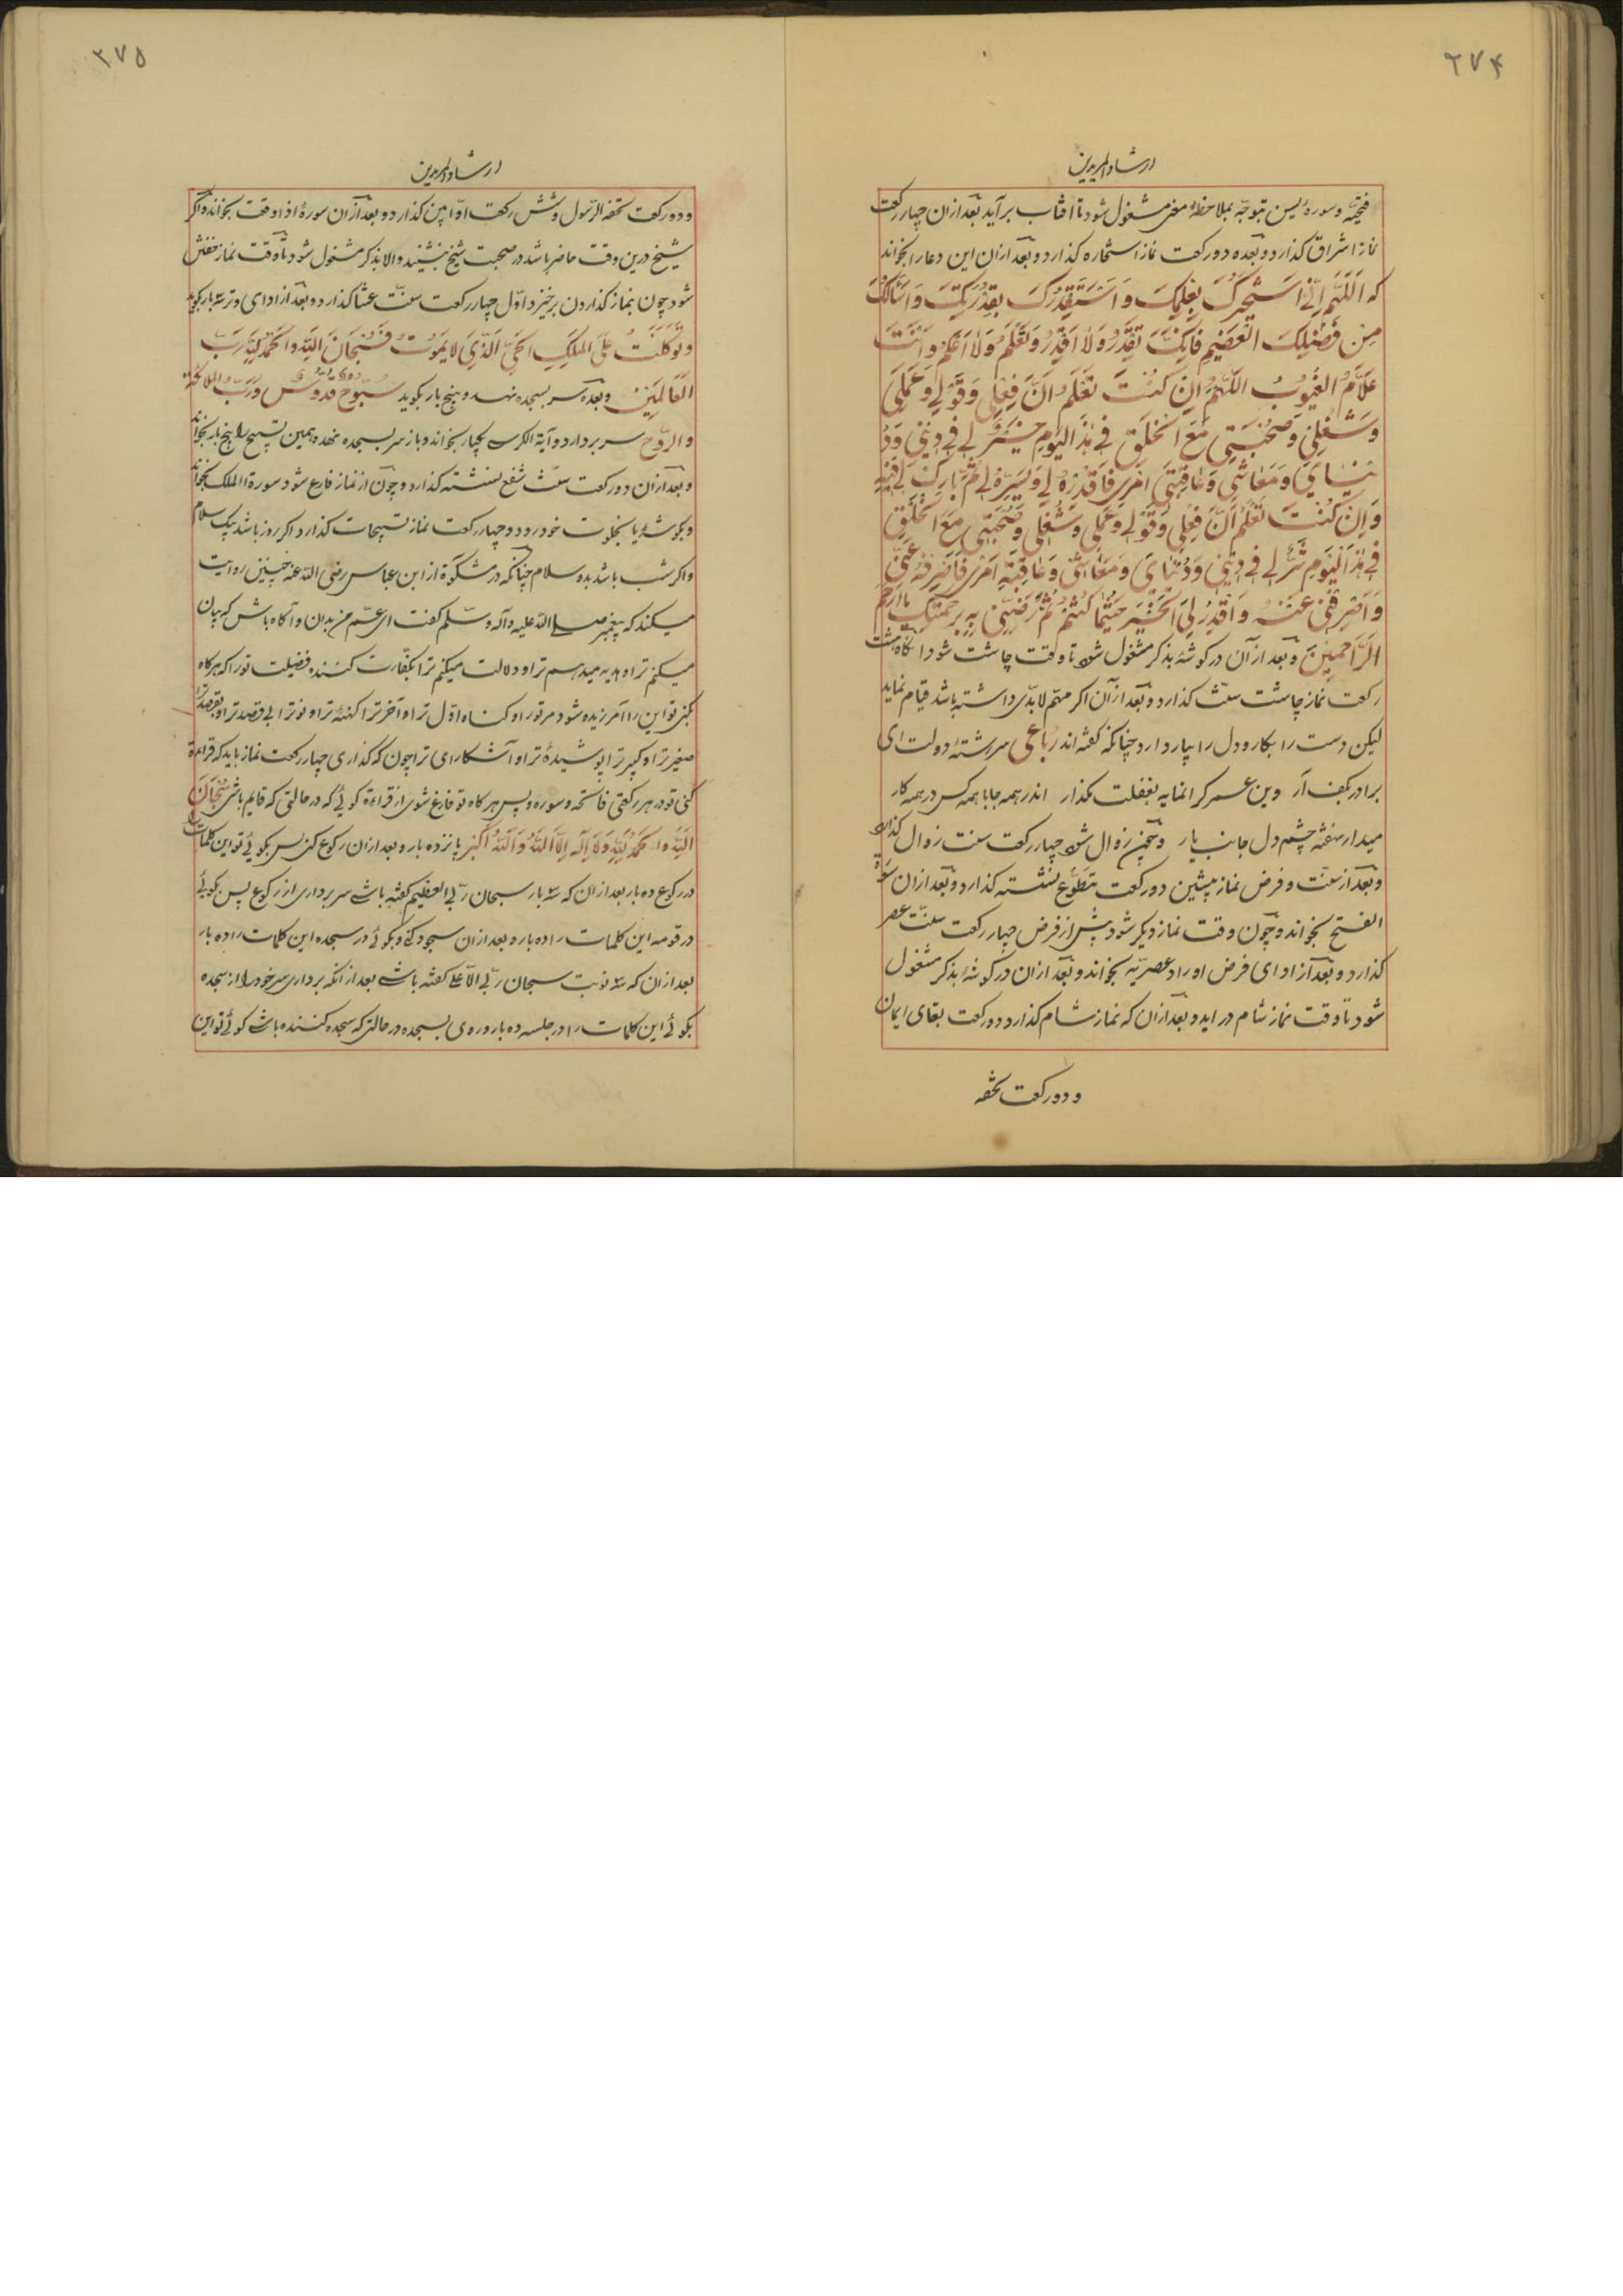 ۲۷۴
ارشاد المریدین
فتحیّه و سورهٔ یس بتوجّه بملاحظهٔ معنی مشغول شود تا افتاب برآید بعد ازان چهار رکعت
نماز اشراق کذارد و بعده دو رکعت نماز استخاره کذارد و بعد ازان این دعا را بخواند
که اَللّهُمَّ اِنّی اَسْتَخیرُکَ بِعِلْمِکَ وَ اَسْتَقْدِرُکَ بِقُدْرَتِکَ وَ اَسْأَلُکَ
مِنْ فَضْلِکَ الْعَضیمِ فَاِنَّکَ تَقْدِرُ وَلا اَقْدِرُ وَ تَعْلَمُ وَلا اَعْلَمُ وَ اَنْتَ
عَلّامُ الغُیُوبُ اَللّهُمَّ اِنْ کُنْتَ تَعْلَمُ اَنَّ فِعْلی وَ قَوْلی وَ عَمَلی
وَ شُغْلی وَ صُحْبَتی مَعَ الْخَلْقِ فی هٰذَا الیَوْمِ خَیْرٌ لی فی دینی وَدُ
نْیایَ وَ مَعاشی وَ عاقِبَتی اَمْری فَاقْدِرْهُ لی وَ یَسِّرْهُ لی ثُمَّ بارِکْ لی فیهِ
وَ اِنْ کُنْتَ تَعْلَمُ اَنَّ فِعْلی وَ قَوْلی وَ عَمَلی وَ شُغْلی وَ صُحْبَتی مَعَ الْخَلْقِ
فی هٰذَا الْیَوْمِ شَرٌّ لی فی دینی وَ دُنْیایَ وَ مَعاشی وَ عاقِبَةِ اَمْری فَاصْرِفْهُ عَنّی
وَ اصْرِفْنی عَنْهُ وَ اقْدِرْ لِیَ الْخَیْرَ حَیْثُما کُنْتُمْ ثُمَّ رَضِّنی بِهِ بِرَحْمَتِکَ یا ارحم
الرَّاحِمِینَ و بعد ازآن در کوشهٔ بذکر مشغول شود تا وقت چاشت شود انگاه هشت
رکعت نماز چاشت سنّت کذارد و بعد ازآن اکر مهمّ لابدّی داشته باشد قیام نماید
لیکن دست را بکار و دل را بیار دارد چنانکه کفته‌اند رُباعی سررشتهٔ دولت ای
برادر بکف آر وین عمر کرانمایه بغفلت مکذار اندر همه جا با همه کس در همه کار
میدار نهفته چشم دل جانب یار و چون زوال شود چهار رکعت سنت زوال کذارد
و بعد از سنّت و فرض نماز پیشین دو رکعت تطوّع نشسته کذارد و بعد ازان سورة
الفتح بخواند و چون وقت نماز دیکر شود پیش از فرض چهار رکعت سنّت عصر
کذارد و بعد از ادای فرض اوراد عصریّه بخواند و بعد ازان در کوشهٔ بذکر مشغول
شود تا وقت نماز شام در اید و بعد ازان که نماز شام کذارد دو رکعت بقای ایمان
و دو رکعت تحفه
۲۷۵
ارشاد المریدین
و دو رکعت تحفه الرّسول و شش رکعت اوّابین کذارد و بعد ازآن سورهٔ اذا وقعت بخواند و اکر
شیخ درین وقت حاضر باشد در صحبت شیخ بنشیند و الا بذکر مشغول شود تا وقت نماز خفتن
شود چون بنماز کذاردن برخیزد اوّل چهار رکعت سنّت عشا کذارد و بعد از ادای وتر سه بار بکوید
وَ تَوَکَّلْتُ عَلَی المَلِکِ الحَیِّ الَّذی لا یَمُوتُ فَسُبْحانَ اللّهِ وَ الحَمْدُ لِلّهِ رَبِّ
الْعالَمینَ و بعده سر بسجده نهد و پنج بار بکوید سُبُّوحٌ قُدُّوسٌ وَ رَبُّ الملائکة
وَ الرُّوح سر بردارد و آیة الکرسی یکبار بخواند و باز سر بسجده نهد و همین تسبیح را پنج بار بخواند
و بعد ازآن دو رکعت سنّت شفع نشسته کذارد و چون از نماز فارع شود سورة الملک بخواند
و بکوشهٔ یا بخلوت خود رود و چهار رکعت نماز تسبیحات کذارد اکر روز باشد بیک سلام
و اکر شب باشد بدو سلام چنانکه در مشکوة از ابن عباس رضی اللّه عنه چنین روایت
میکند که پیغمبر صلی اللّه علیه و آله و سلّم کفت ای عمّ من بدان و آکاه باش که بیان
میکنم ترا و هدیه میدهم ترا و دلالت میکنم ترا بکفّارت کننده فضیلت تو را که هرکاه
بکنی تو این را آمرزیده شود مر تو را و کناه اوّل ترا و آخر ترا کهنهٔ ترا و نو ترا بی قصد ترا و بقصد ترا
صغیر ترا و کبیر ترا پوشیدهٔ ترا و آشکارای ترا چون که کذاری چهار رکعت نماز باید که قراءة
کنی تو در هر رکعتی فاتحه و سوره و پس هرکاه تو فارغ شوی از قراءة کوئی که در حالتی که قایم باشی سُبْحانَ
اللّهِ وَ الحَمْدُ لِلّهِ وَ لا اِلٰهَ اِلاَّ اللّهُ وَ اللّهُ اَکْبَر پانزده بار و بعد ازان رکوع کنی پس بکوئی تو این کلمات را
در رکوع ده بار بعد ازان که سه بار سبحان ربّی العظیم کفته باشی سر برداری از رکوع پس بکوئی
در قومه این کلمات را ده بار و بعد ازان سجود کنی و بکوئی در سجده این کلمات را ده بار
بعد ازان که سه نوبت سبحان ربّی الاعلی کفته باشی بعد از انکه برداری سر خود را از سجده
بکوئی این کلمات را در جلسه ده بار و روی بسجده در حالتی که سجده کننده باشی کوئی تو این